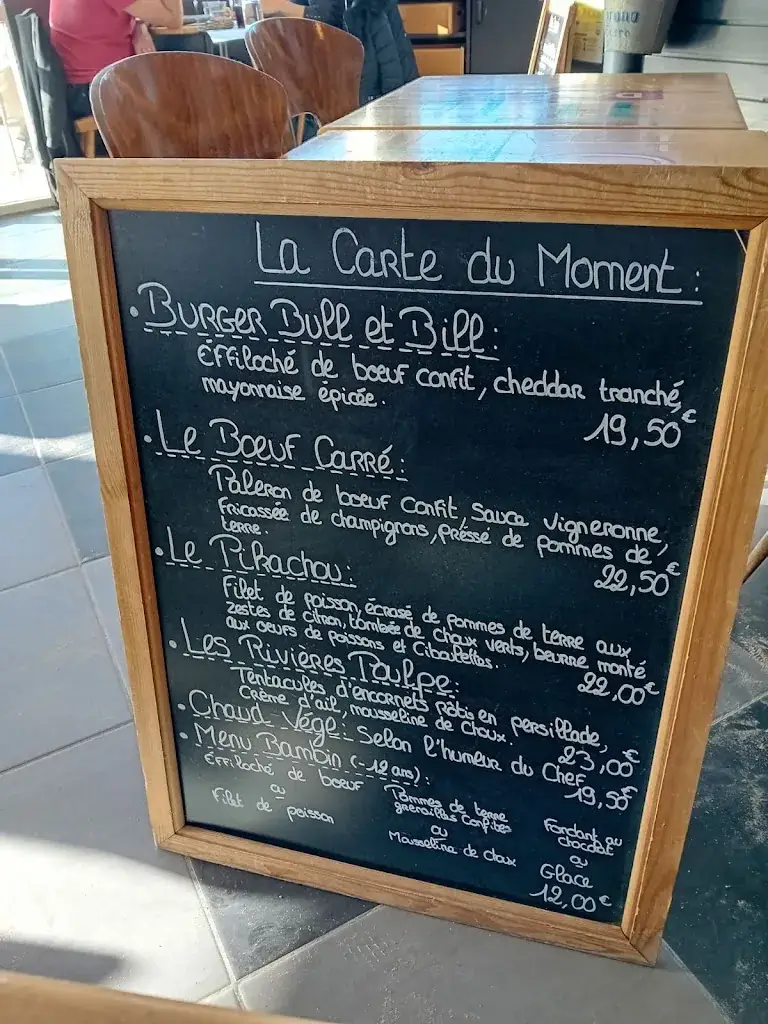 La Carte du Moment :
• Burger Bull et Bill :
Effiloché de boeuf confit, cheddar tranché,
mayonnaise épicée.
19,50€
• Le Boeuf Carré :
Paleron de boeuf confit, sauce vigneronne,
fricassée de champignons, préssé de pommes de
terre.
22,50€
• Le Pikachou :
Filet de poisson, écrasé de pommes de terre aux
zestes de citron, tombée de choux verts, beurre monté
aux oeufs de poissons et Ciboulettes.
22,00€
• Les Rivières Poulpe :
Tentacules d'encornets rôtis en persillade,
Crème d'ail, mousseline de choux.
23,00€
• Chaud Végé : Selon l'humeur du Chef
19,50€
• Menu Bambin (-12 ans) :
Effiloché de boeuf
ou
Filet de poisson
Pommes de terre
grenailles confites
ou
Mousseline de choux
Fondant au
chocolat
ou
Glace
12,00€